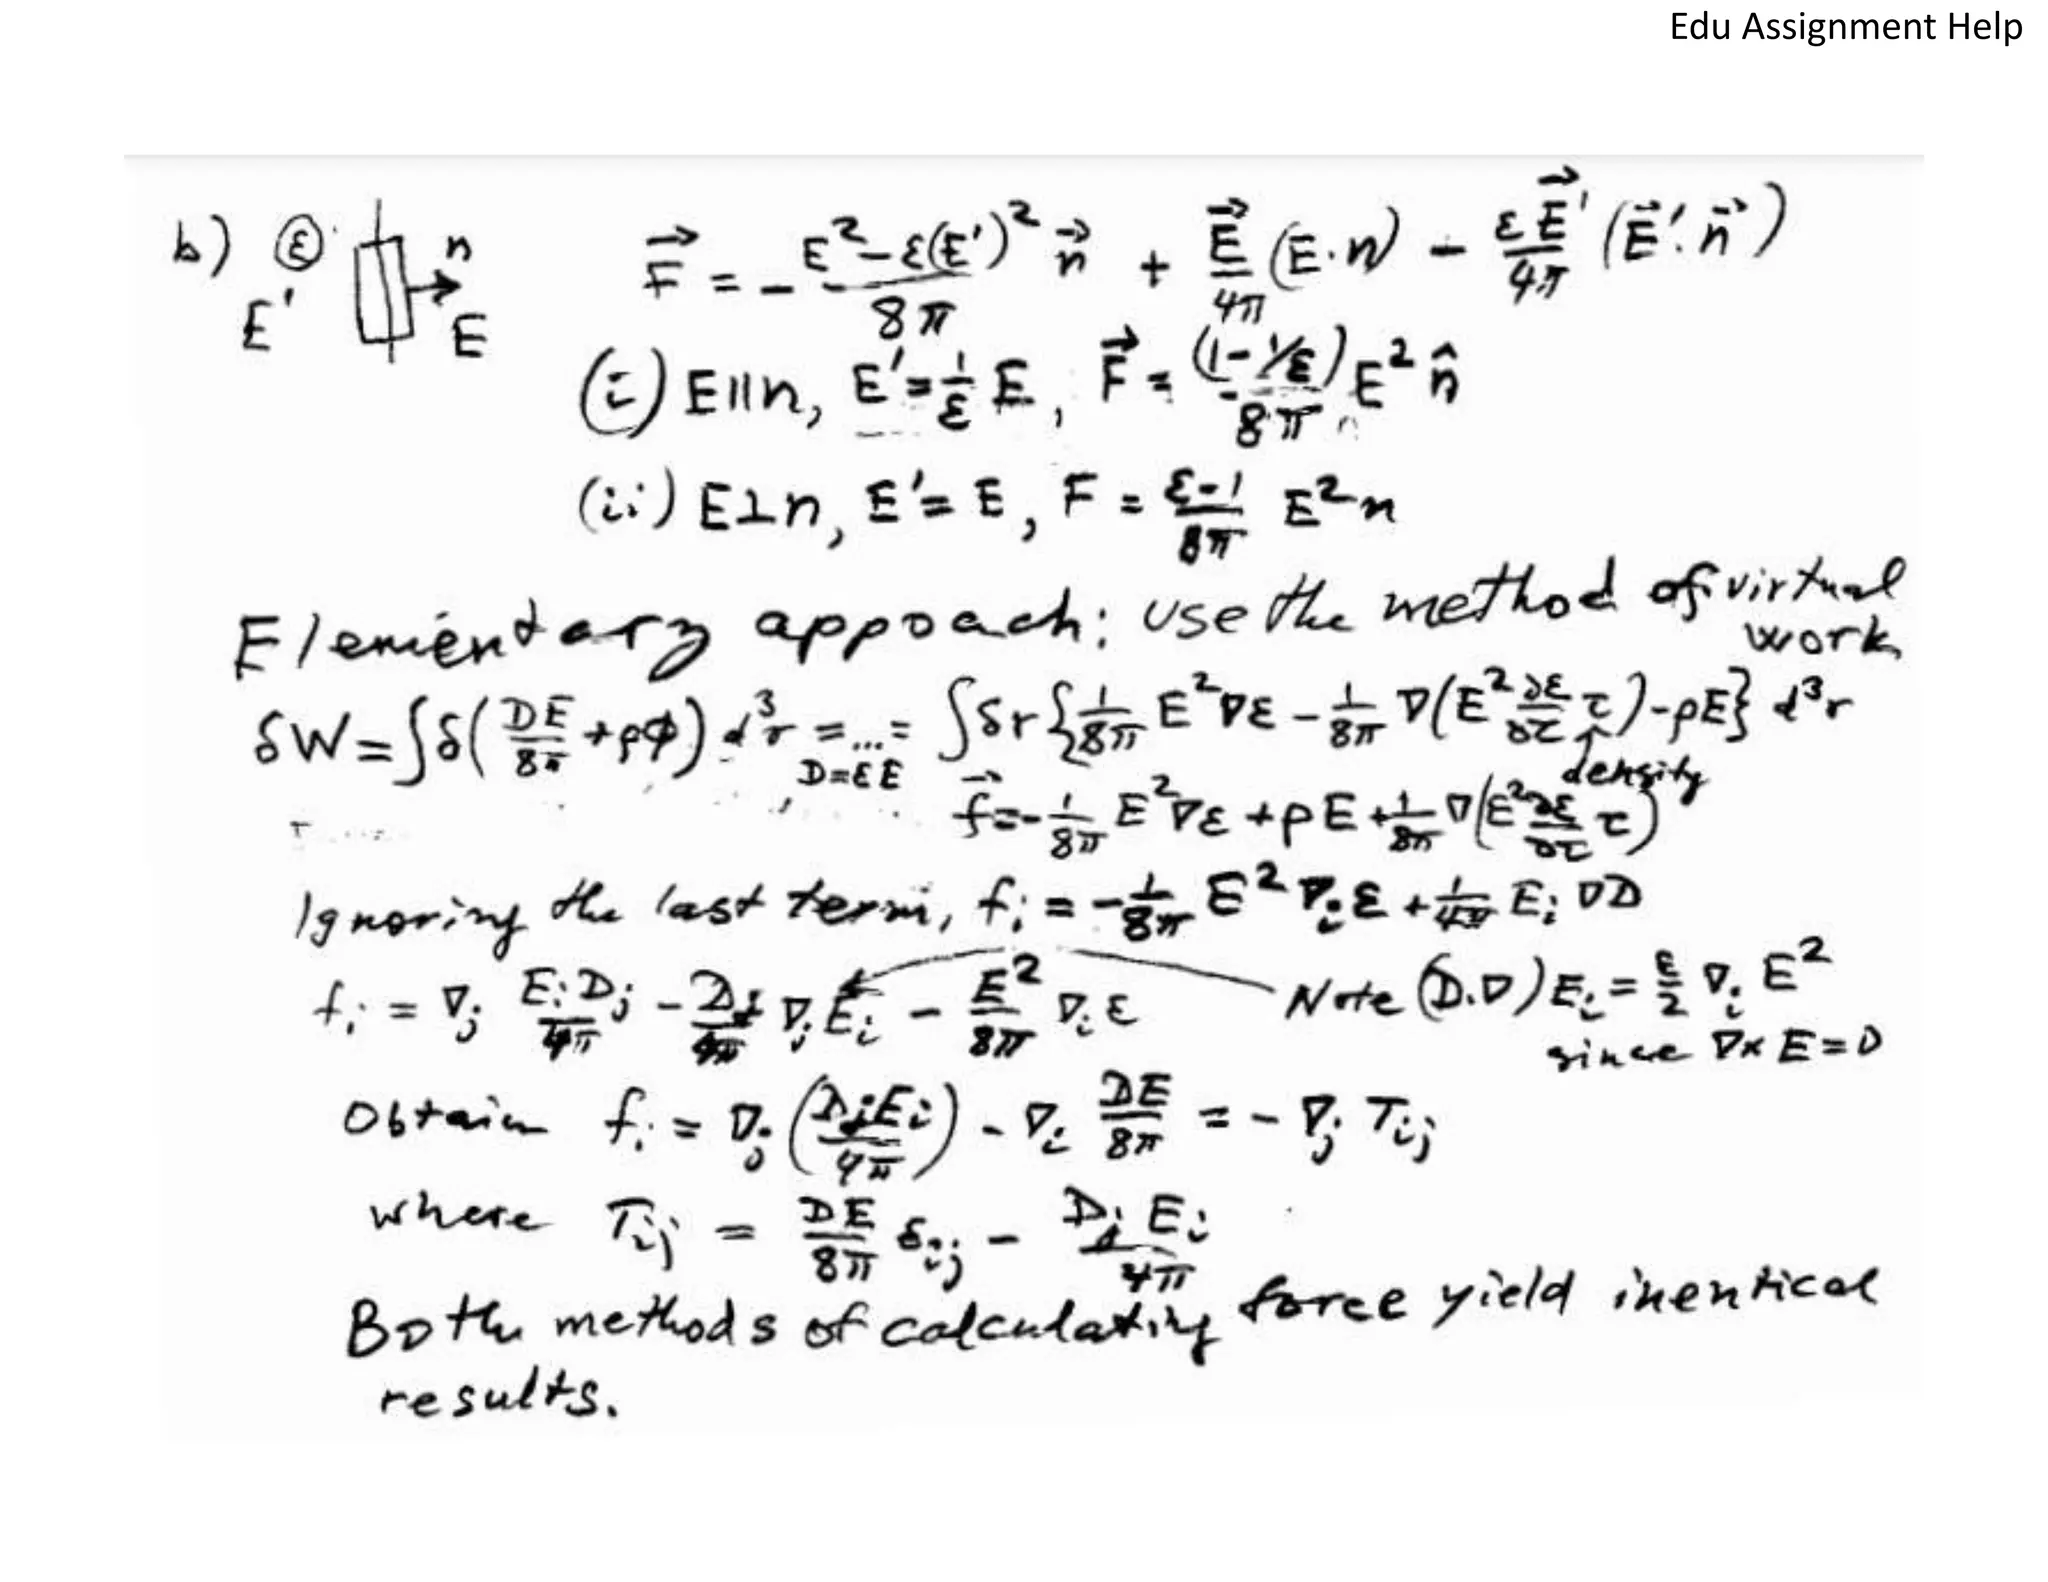 Edu Assignment Help
b) ⓔ E' n E F⃗ = - (E² - ε(E')²)/8π n⃗ + E⃗/4π (E·n) - εE⃗'/4π (E⃗'·n⃗)
(i) E∥n, E' = 1/ε E, F⃗ = (1-1/ε)/8π E² n̂
(ii) E⊥n, E' = E, F = (ε-1)/8π E² n
Elementary appoach: use the method of virtual work
δW = ∫δ(DE/8π + ρϕ) d³r = ... = ∫δr {1/8π E²∇ε - 1/8π ∇(E² ∂ε/∂τ τ) - ρE} d³r
D=εE
density
f⃗ = -1/8π E²∇ε + ρE + 1/8π ∇(E² ∂ε/∂τ τ)
Ignoring the last term, fᵢ = -1/8π E² ∇ᵢε + 1/4π Eᵢ ∇D
fᵢ = ∇ⱼ EᵢDⱼ/4π - Dⱼ/4π ∇ⱼEᵢ - E²/8π ∇ᵢε Note (D·∇)Eᵢ = ε/2 ∇ᵢ E²
since ∇×E=0
Obtain fᵢ = ∇ⱼ (DⱼEᵢ/4π) - ∇ᵢ DE/8π = -∇ⱼ Tᵢⱼ
where Tᵢⱼ = DE/8π δᵢⱼ - DⱼEᵢ/4π
Both methods of calculating force yield inentical
results.